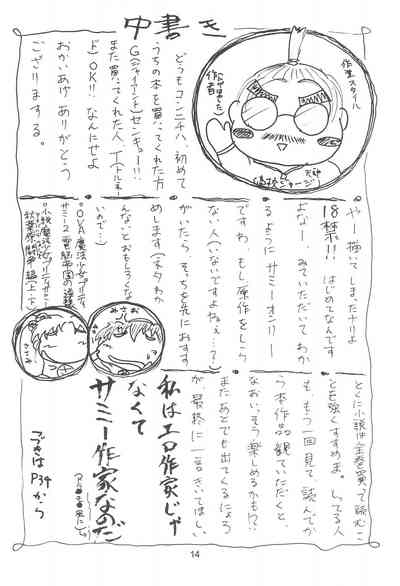 中書き
どうもコンニチハ、初めて
うちの本を買ってくれた方
G(ジャイアント)センキュー!!
また買ってくれた人
OK!! なんにせよ
おかいあげありがとう
ござりまする。
作業スタイル
作者
や〜描いてしまったナリよ
18禁!!! はじめてなんです
よなー、みていただいてわか
るようにサミーオンリー
ですわ。もし原作をしら
ない人(いないですよねぇ…?)
がいたら、そっちを先におすす
めします(ネタわか
んないとおもしろくな
いので…)
OVA魔法少女プリティ
サミー2
小説魔法少女プリティサミー
みさお
とくに小説は全巻買って読むこ
とを強くすすめま。しってる人
も、もう一回見て、読んでか
ら本作品観ていただくと、
なおいっそう楽しめるかも!?
またあとでも出てくるにょろ
が、最終に一言きいてほしい
私はエロ作家じゃ
なくて
サミー作家なのだ
つづきは
P34から
14